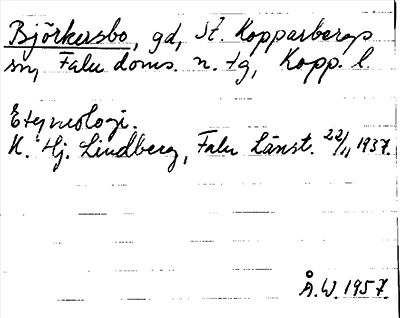 Björkersbo, gd, St. Kopparbergs
sn, Falu doms. n. tg, Kopp. l.
Etymologi.
K. Hj. Lindberg, Falu Länst. 22/11 1937.
Å.W. 1957.